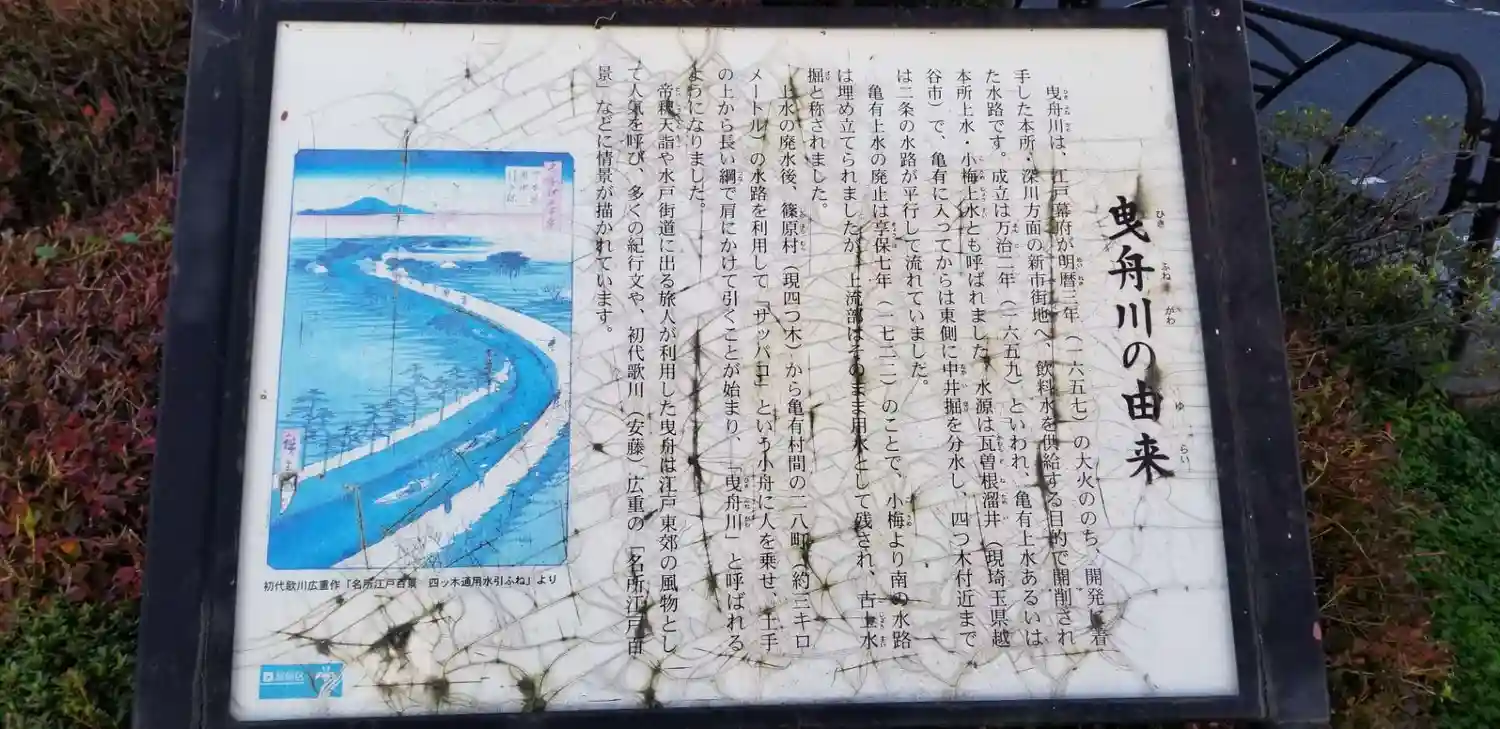 曳舟川の由来
ひき ふね がわ ゆ らい
曳舟川は、江戸幕府が明暦三年（一六五七）の大火ののち、開発に着
手した本所・深川方面の新市街地へ、飲料水を供給する目的で開削され
た水路です。成立は万治二年（一六五九）といわれ、亀有上水あるいは
本所上水・小梅上水とも呼ばれました。水源は瓦曽根溜井（現埼玉県越
谷市）で、亀有に入ってからは東側に中井堀を分水し、四つ木付近まで
は二条の水路が平行して流れていました。
亀有上水の廃止は享保七年（一七二二）のことで、小梅より南の水路
は埋め立てられましたが、上流部はそのまま用水として残され、古上水
堀と称されました。
上水の廃水後、篠原村（現四つ木）から亀有村間の二八町（約三キロ
メートル）の水路を利用して「サッパコ」という小舟に人を乗せ、土手
の上から長い綱で肩にかけて引くことが始まり、「曳舟川」と呼ばれる
ようになりました。
帝釈天詣や水戸街道に出る旅人が利用した曳舟は江戸東郊の風物とし
て人気を呼び、多くの紀行文や、初代歌川（安藤）広重の「名所江戸百
景」などに情景が描かれています。
初代歌川広重作「名所江戸百景　四ッ木通用水引ふね」より